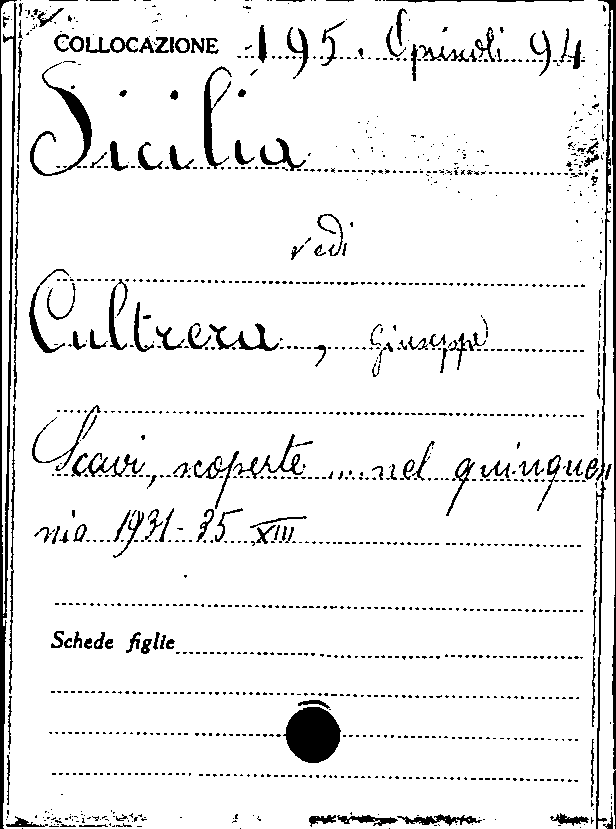 COLLOCAZIONE 195. Opuscoli 94
Sicilia
vedi
Cultrera, Giuseppe
Scavi, scoperte .... nel quinquen
nio 1931-35 XIII
Schede figlie